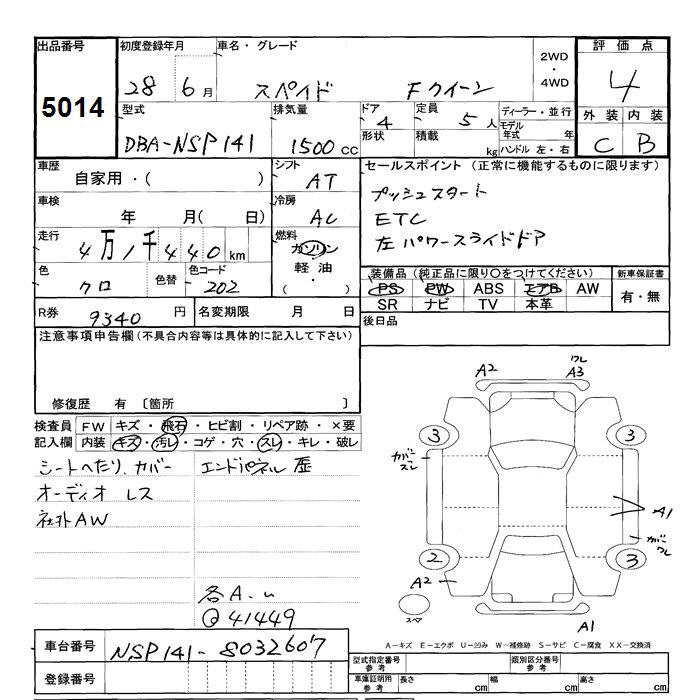 出品番号 初度登録年月 車名・グレード 2WD ・ 4WD 評価点
5014 28 6月 スペイド Fクイーン 4
型式 排気量 ドア 4 定員 5人 ディーラー・並行 外装 内装
DBA-NSP141 1500cc 形状 積載 kg モデル年式 年 ハンドル 左・右 C B
車歴 シフト セールスポイント (正常に機能するものに限ります)
自家用・( ) AT プッシュスタート
車検 冷房 ETC
年 月( 日) AC 左パワースライドドア
走行 燃料
4万1千440km ガソリン・軽油・( )
色 色替 色コード 装備品 (純正品に限り○をつけてください) 新車保証書
クロ 202 PS PW ABS エアB AW 有・無
SR ナビ TV 本革
R券 9340円 名変期限 月 日 後日品
注意事項申告欄 (不具合内容等は具体的に記入して下さい)
修復歴 有 〔箇所 〕
検査員記入欄 FW キズ・飛石・ヒビ割・リペア跡・×要
内装 キズ・汚レ・コゲ・穴・スレ・キレ・破レ
シートへたり、カバー エンドパネル歴
オーディオレス
社外AW
各A.u
@41449
A2 ワレ A3
3 3
カバースレ
A1
カバーワレ
2 3
A2
スペア
A1
A-キズ E-エクボ U-凹み W-補修跡 S-サビ C-腐食 XX-交換済
車台番号 NSP141-8032607
登録番号
型式指定番号 参考 類別区分番号 参考
車庫証明用 参考 長さ cm 幅 cm 高さ cm